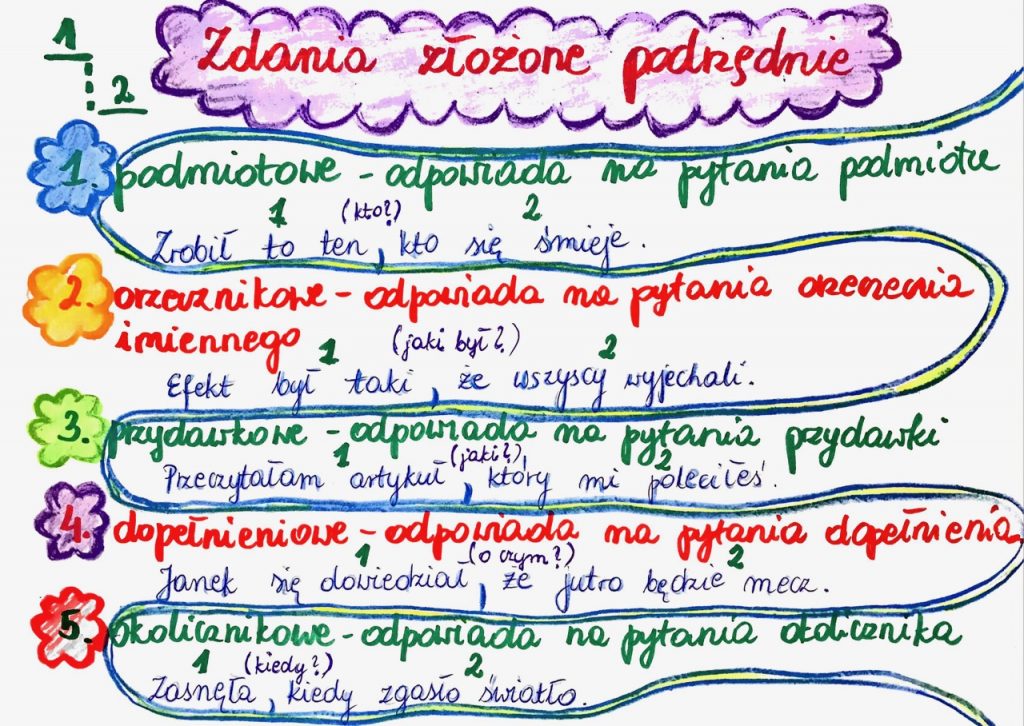 1
Zdania złożone podrzędnie
2
1. podmiotowe - odpowiada na pytania podmiotu
1 (kto?) 2
Zrobił to ten, kto się śmieje.
2. orzecznikowe - odpowiada na pytania orzeczenia
imiennego
1 (jaki był?) 2
Efekt był taki, że wszyscy wyjechali.
3. przydawkowe - odpowiada na pytania przydawki
1 (jaki?) 2
Przeczytałam artykuł, który mi poleciłeś.
4. dopełnieniowe - odpowiada na pytania dopełnienia
1 (o czym?) 2
Janek się dowiedział, że jutro będzie mecz.
5. okolicznikowe - odpowiada na pytania okolicznika
1 (kiedy?) 2
Zasnęła, kiedy zgasło światło.